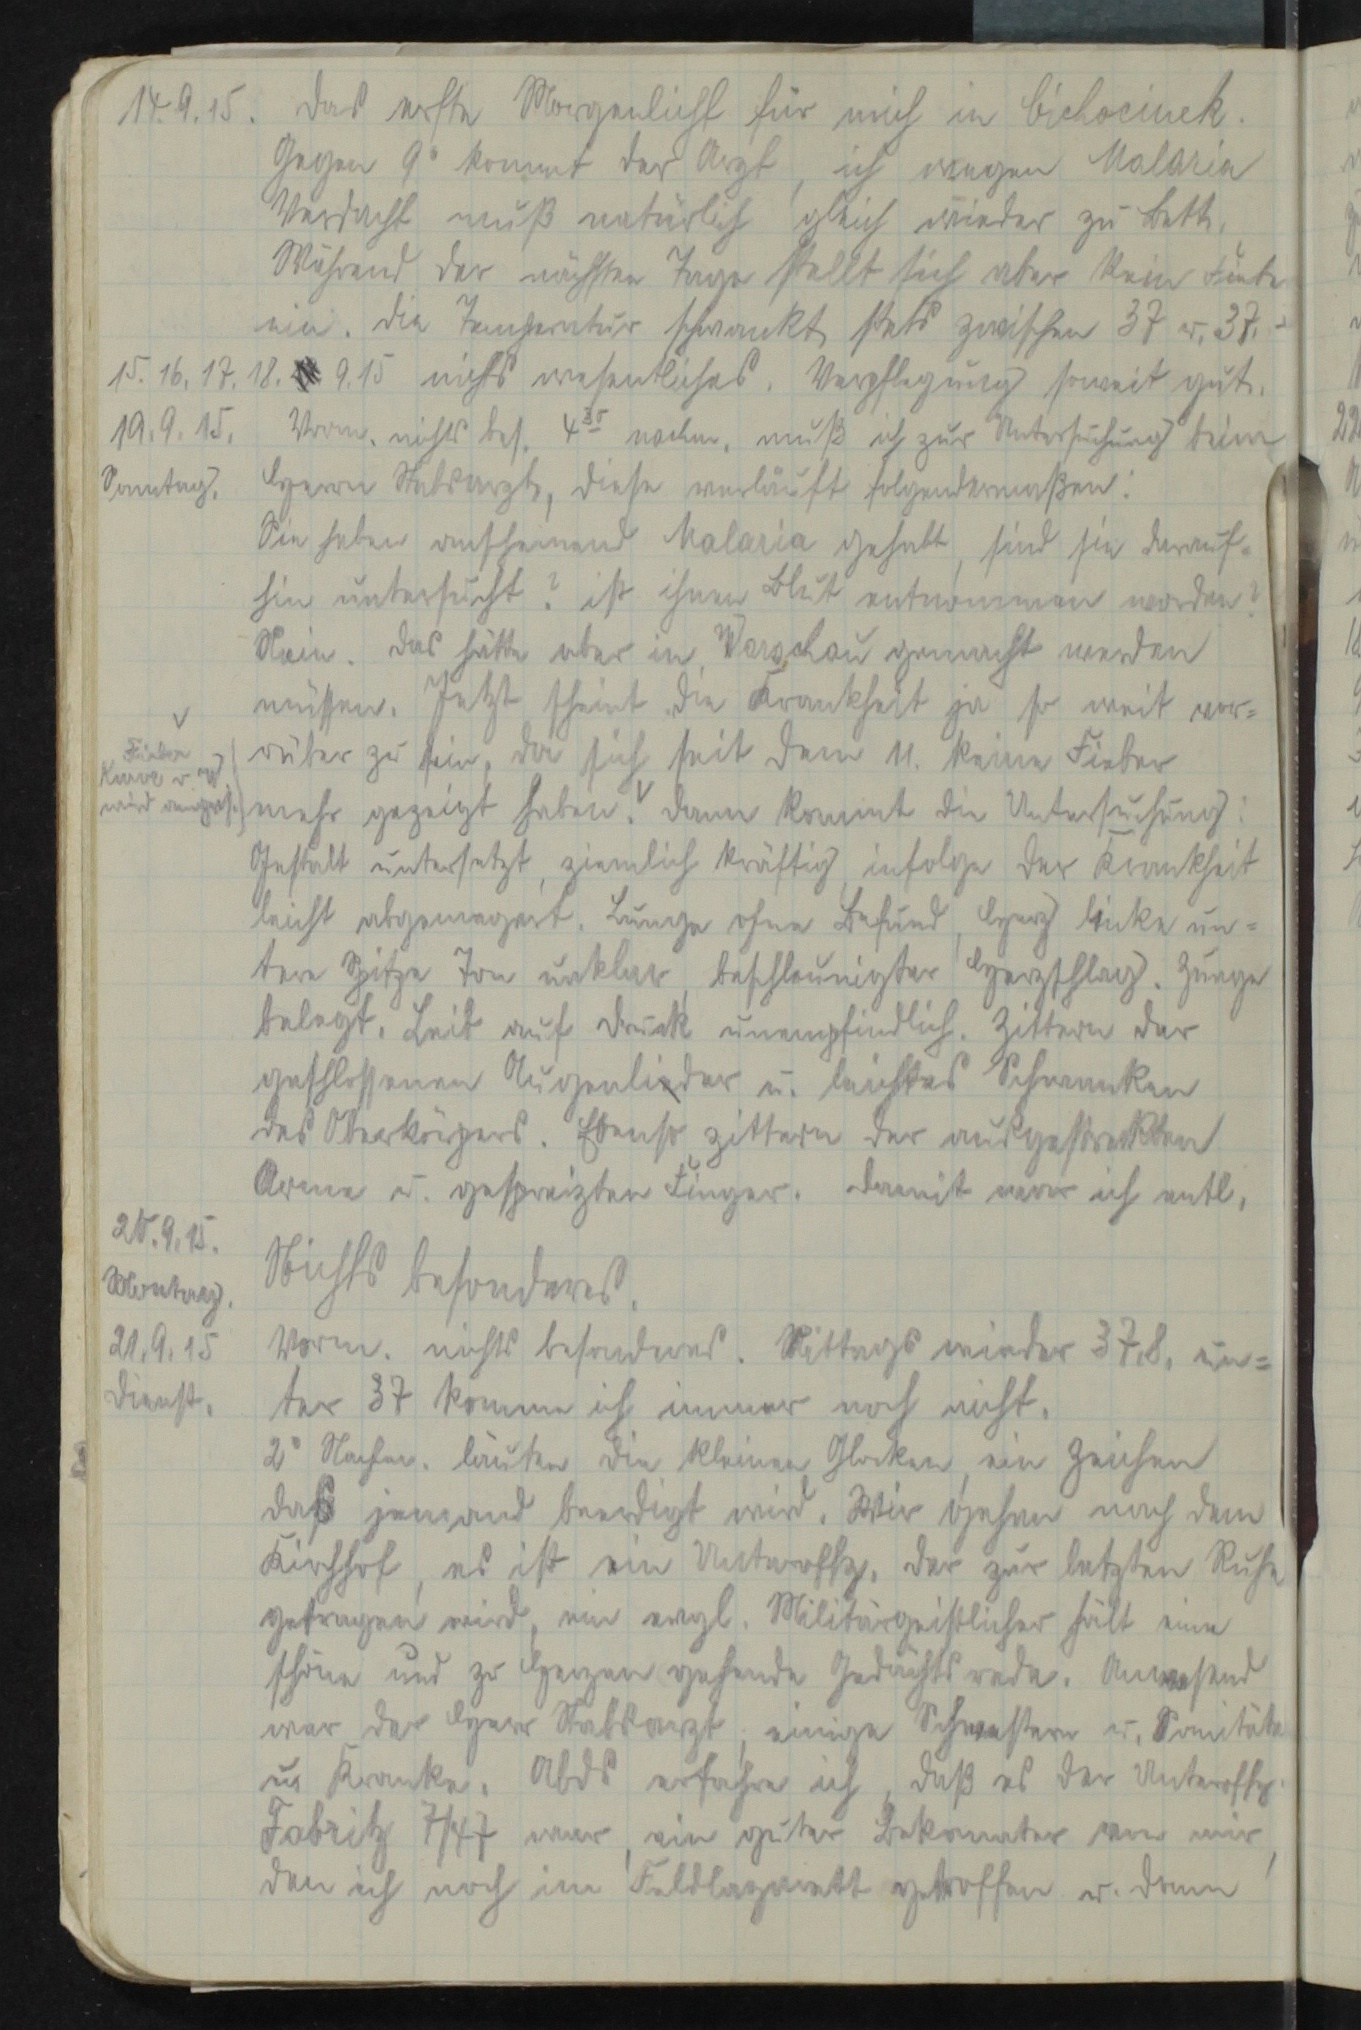 14.9.15. Das erste Morgenlicht für mich in Cichocinek.
Gegen 9° kommt der Arzt, ich wegen Malaria
Verdacht muß natürlich gleich wieder zu Bett.
Während der nächsten Tage stellt sich aber kein Fiebe
ein. Die Temperatur schwankt stets zwischen 37 u. 37.
15. 16. 17. 18. 9.15 nichts wesentliches. Verpflegung soweit gut.
19.9.15. Vorm. nichts bes. 4 30 nachm. muß ich zur Untersuchung beim
Sonntag. Herrn Stabsarzt, diese verläuft folgendermaßen:
Sie haben anscheinend Malaria gehabt, sind sie darauf-
hin untersucht? ist ihnen Blut entnommen worden?
Nein. Das hätte aber in Warschau gemacht werden
müssen. Jetzt scheint die Krankheit ja so weit vor-
rüber zu sein, da sich seit dem 11. keine Fieber
mehr gezeigt haben. Dann kommt die Untersuchung:
Fieber
Kurve
wird
Gestalt untersetzt, ziemlich kräftig, infolge der Krankheit
leicht abgemagert. Lunge ohne Befund, Herz linke un-
tere Spitze Ton unklar, beschleunigter Herzschlag. Zunge
belegt. Leib auf Druck unempfindlich. Zittern der
geschlossenen Augenlieder u. leichtes Schwanken
des Oberkörpers. Ebenso zittern der ausgestreckten
Arme u. gespreizten Finger. Damit war ich entl.
20.9.15.
Montag. Nichts besonderes.
21.9.15 Vorm. nichts besonderes. Mittags wieder 37,8. un-
Dienst. ter 37 komme ich immer noch nicht.
2° Nachm. läuten die kleinen Glocken, ein Zeichen
daß jemand beerdigt wird. Wir gehen nach dem
Kirchhof, es ist ein Unteroffz. der zur letzten Ruhe
getragen wird, ein evgl. Militärgeistlicher hält eine
schöne und zu Herzen gehende Gedächtsrede. Anwesend
war der Herr Stabsarzt, einige Schwestern u. Sanitäte
u. Kranke. Abds erfahre ich, daß es der Unteroffz.
Fabritz 7/47 war, ein guter Bekannter von mir,
den ich noch im Feldlazarett getroffen u. dann